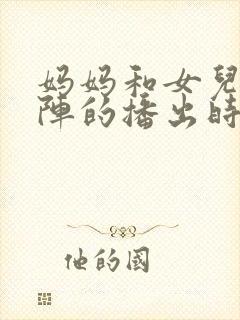 妈妈和女兒
陣的播出時
他的國